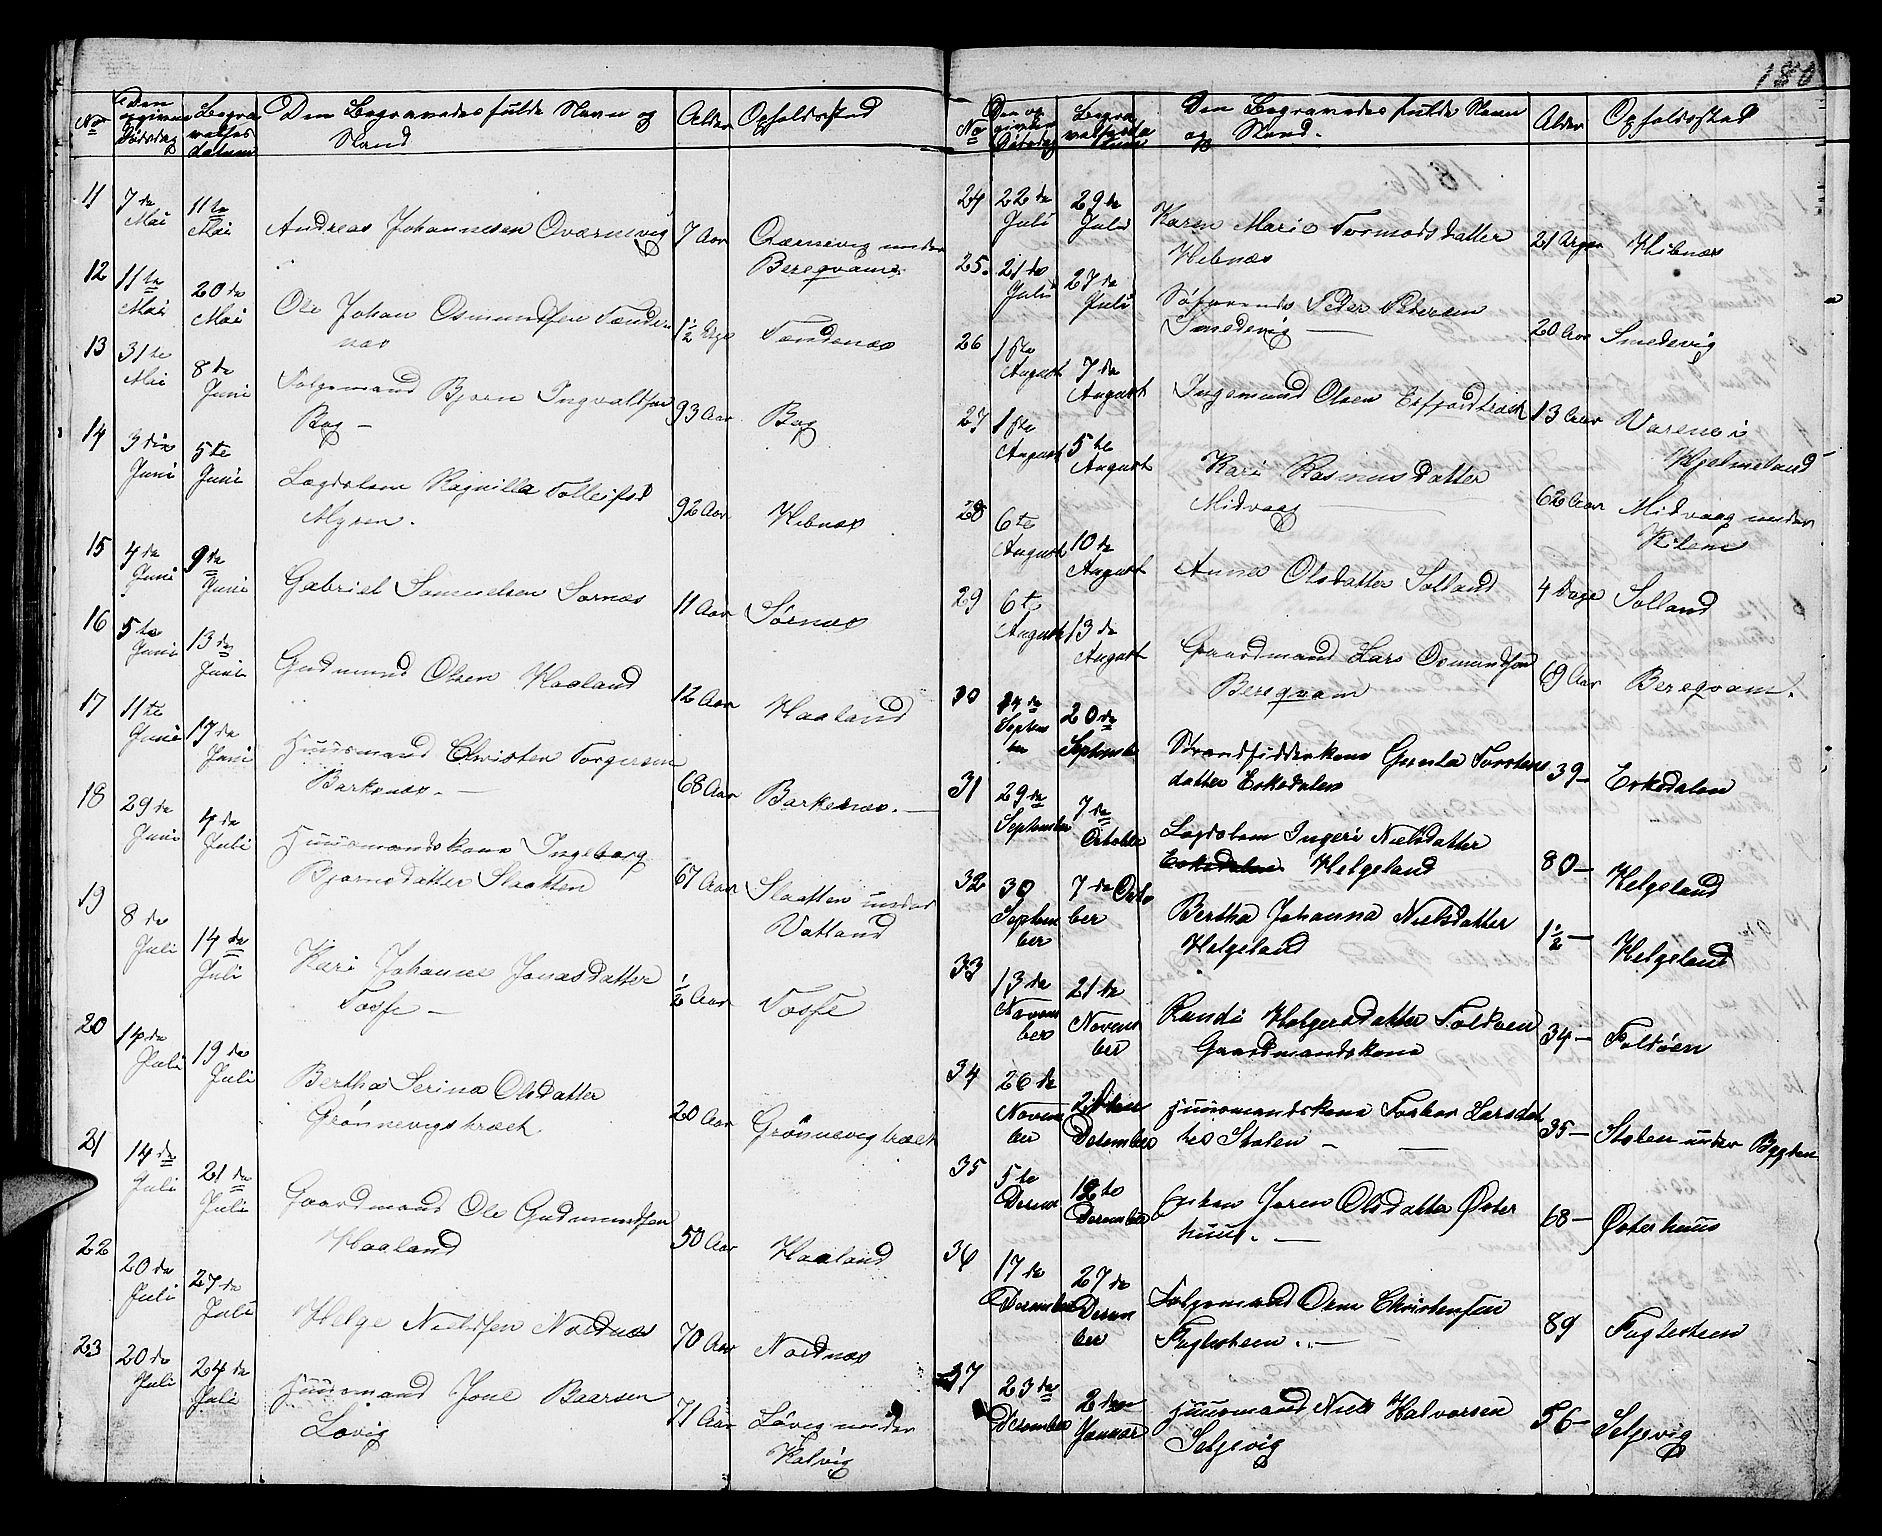 180
No
Den opgivne Dødsdag
Begravelses datum
Den Begravedes fulde Navn og Stand
Alder
Opholdssted
11 7de Mai 11te Mai Andreas Johannesen Qværnevig 7 Aar Qværnevig under Bereqvam
12 11te Mai 20de Mai Ole Johan Osmundsen Tændenæs 1½ Tændenæs
13 31te Mai 8de Juni Følgemand Bjørn Ingvaldsen Bøg — 93 Aar Bøg
14 3die Juni 5te Juni Lægdslem Ragnilla Tolleifsd Myren. 92 Aar Hebnæs
15 4de Juni 9de Juni Gabriel Samuelsen Sørnæs 11 Aar Sørnæs
16 5te Juni 13de Juni Gudmund Olsen Haaland 12 Aar Haaland
17 11te Juni 17de Juni Huusmand Christen Torgersen Barkenæs. — 68 Aar Barkenæs. —
18 29de Juni 4de Juli Huusmandskone Ingeborg Bjørnsdatter Slaatten 67 Aar Slaatten under Vatland
19 8de Juli 14de Juli Kari Johanne Jonasdatter Tosse — ½ Aar Tosse
20 14de Juli 19de Juli Bertha Serina Olsdatter Grønnevigstræet 20 Aar Grønnevigtræet
21 14de Juli 21de Juli Gaardmand Ole Gudmundsen Haaland 50 Aar Haaland
22 20de Juli 27de Juli Helge Nielssen Nordnæs 70 Aar Nordnæs
23 20de Juli 24de Juli Huusmand Jone Baarsen Løvig 71 Aar Løvig under Halvig
No
Den opgivne Dødsdag
Begravelsesdatum
Den Begravedes fulde Navn og Stand.
Alder
Opholdssted
24 22de Juli 29de Juli Karen Marie Tormodsdatter Hebnæs 21 Hebnæs
25. 21de Juli 27de Juli Søfarende Peder Pedersen Smedevig — 20 Aar Smedevig
26 1ste August 7de August Ingemund Olsen Erfjordtræet 13 Aar Varene i Hjelmeland
27 1ste August 5te August Kari Rasmusdatter Midvaag — 62 Aar Midvaag under Kilen
28 6te August 10de August Anna Olsdatter Solland 4 Dage Solland
29 6te August 13de August Gaardmand Lars Osmundsen Bereqvam 69 Aar Bereqvam.
30 14de September 20de September Strandsidderkone Gunla Torstensdatter Eskedalen 39 — Eskedalen
31 29de September 7de October Lægdslem Ingeri Nielsdatter Eskedalen Helgeland 80 — Helgeland
32 30 September 7de October Bertha Johanna Nielsdatter Helgeland 1½ — Helgeland
33 13de November 21de November Randi Helgesdatter Foldøen Gaardmandskone 34 — Foldøen
34 26de November 2den December Huusmandskone Torbor Larsdatter Stølen — — 35 — Stølen under Bygden
35 5te Decem 12te December Enken Joren Olsdatter Østerhuus. — 68 — Østerhuus
36 17de December 27de December Følgemand Orm Christensen Fuglesteen. . — 89 Fuglesteen
37 23de December 2den Januar Huusmand Niels Halvorsen Selgevig 56 — Selgevig